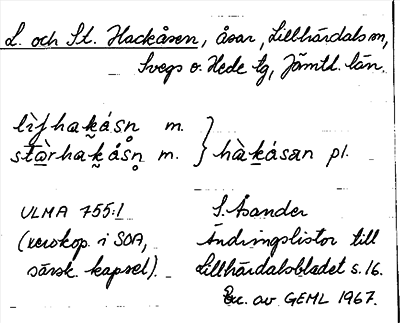 L. och St. Hackåsen, åsar, Lillhärdals sn,
Svegs o. Hede tg, Jämtl. län.
lìʃhaḵásn̥ m. } hàḵásan pl.
sta̱òrhaḵåsn̥ m.
ULMA 755:1
(xerokop. i SOA,
särsk. kapsel).
S. Åsander
Ändringslistor till
Lillhärdalsbladet s. 16.
Exc. av GEML 1967.